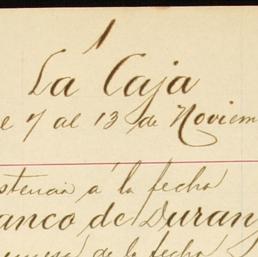 1
La Caja
e 7 al 13 de Noviem
stencia á la fecha
anco de Duran
de la fecha